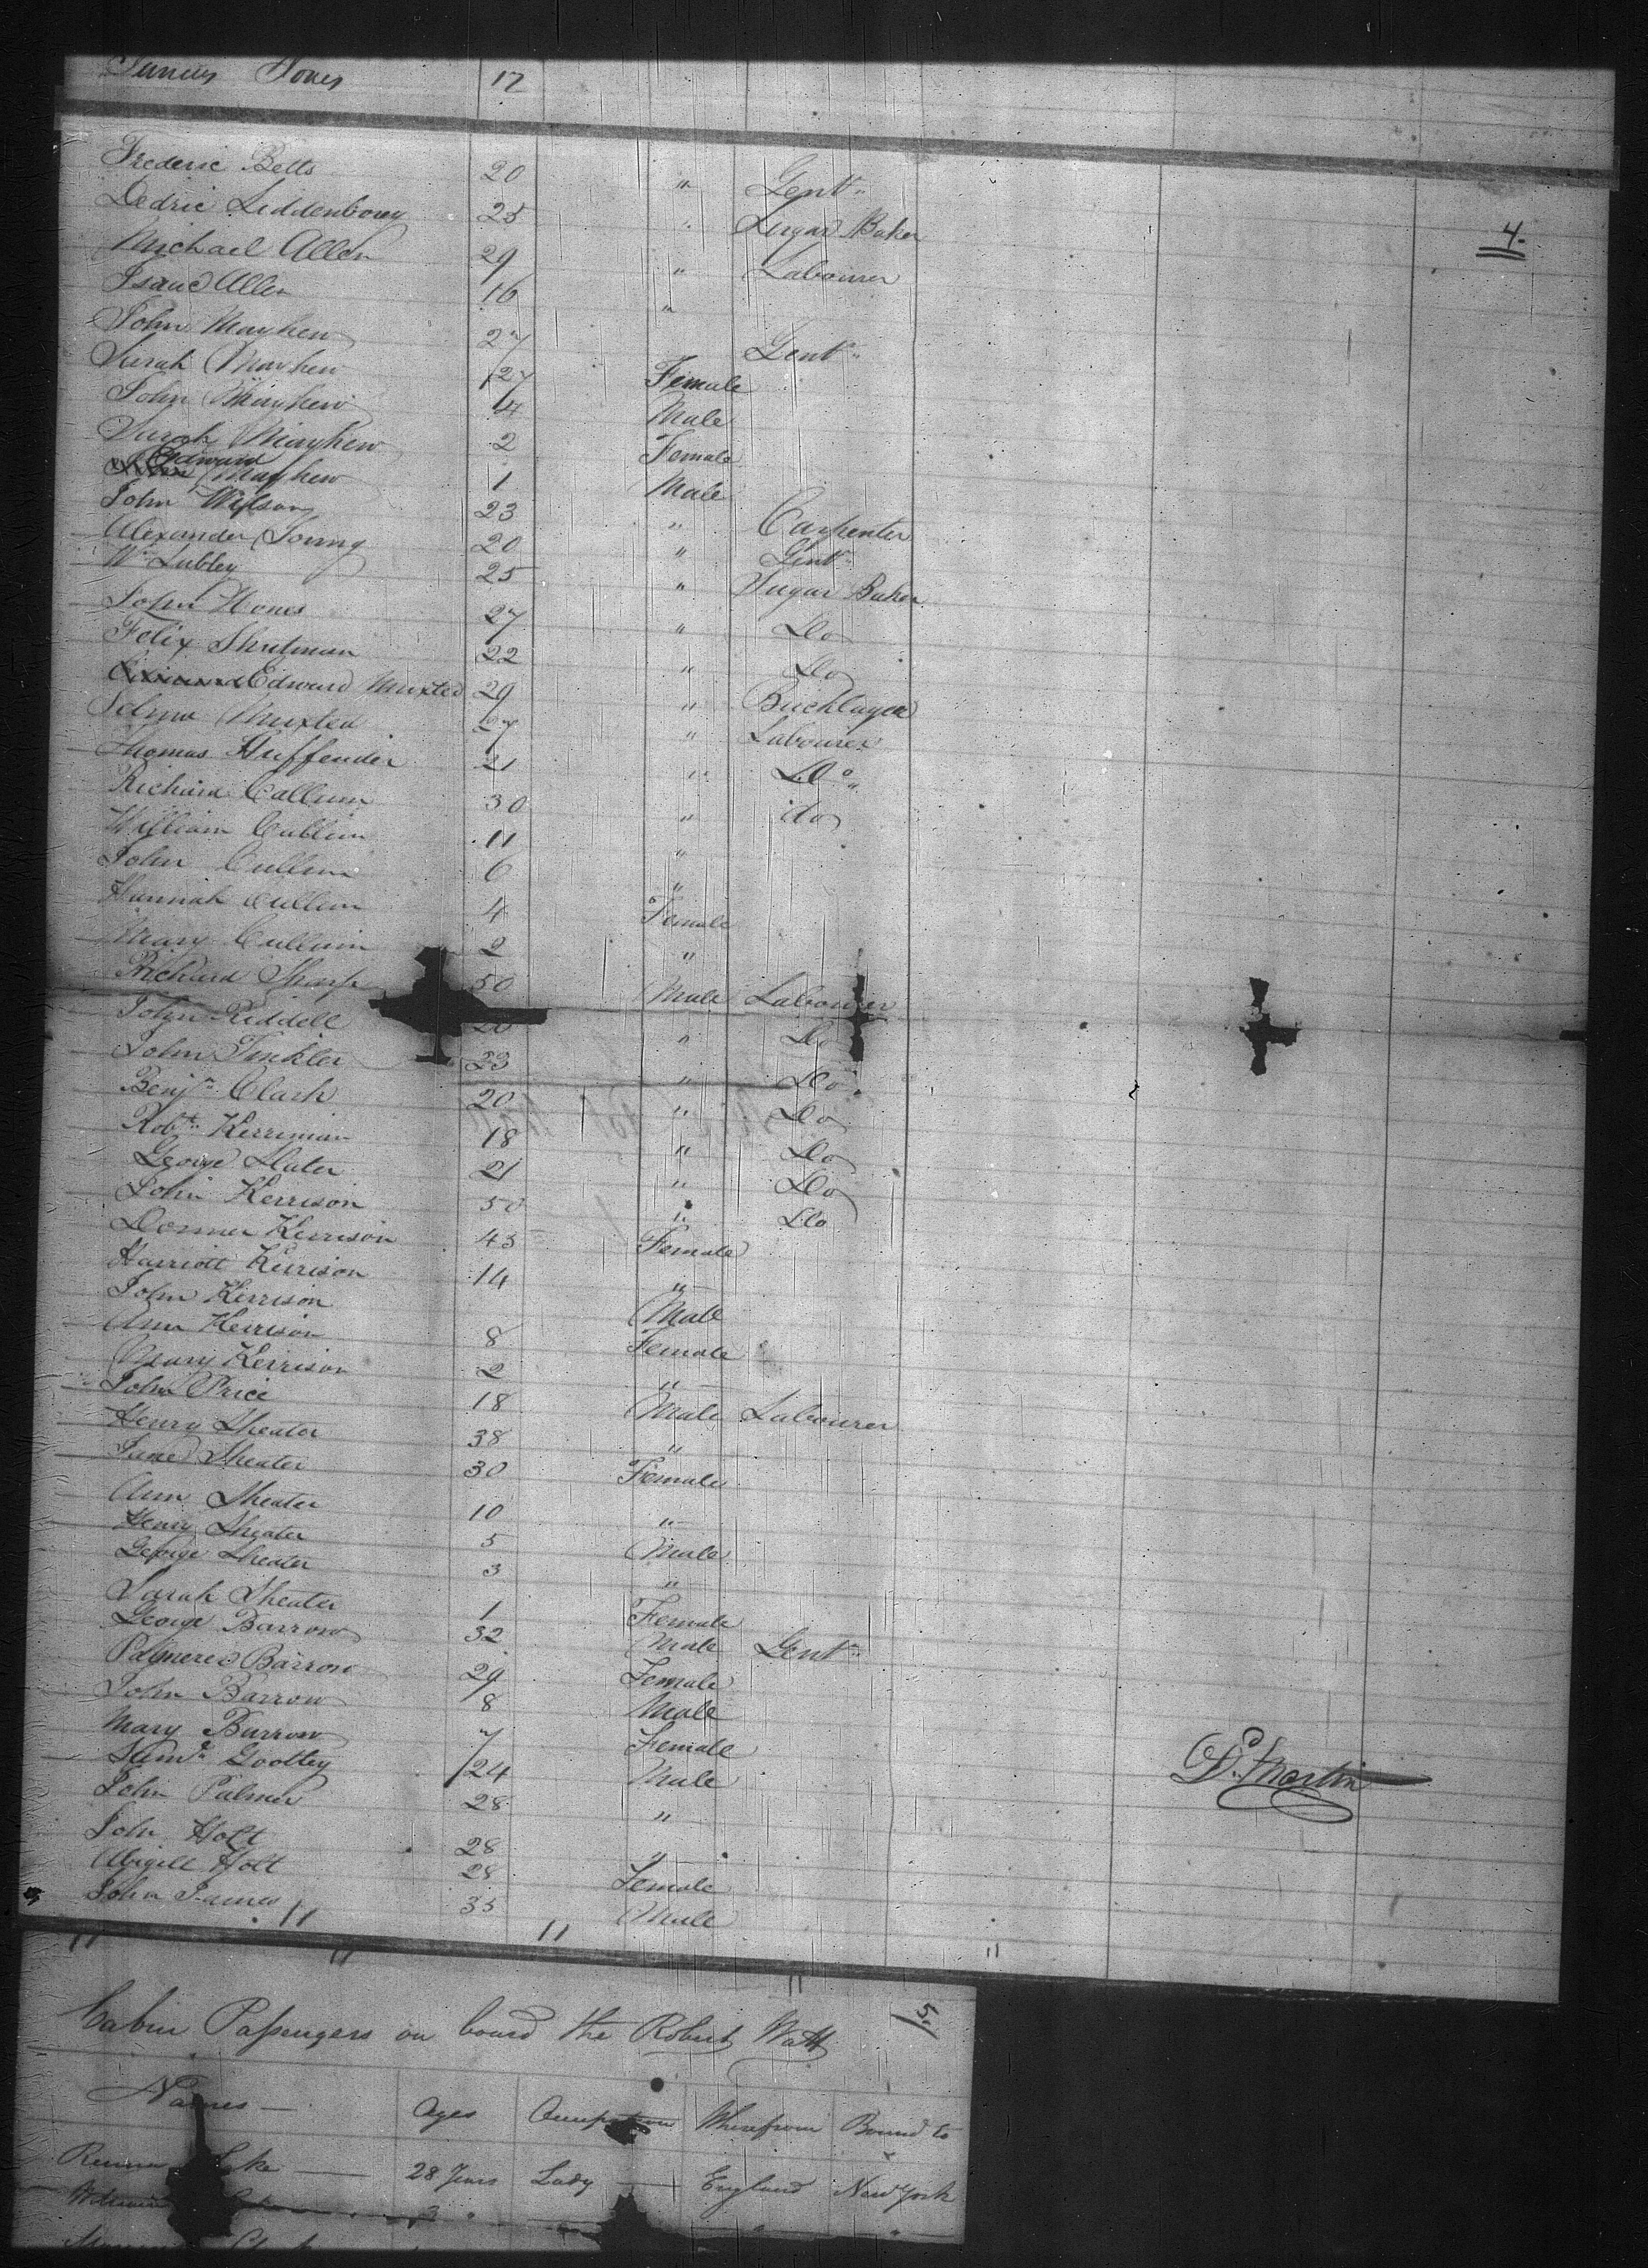 James Jones 17
4.
Frederic Betts 20 " Gentn
Dedric Liddenbony 25 " Sugar Baker
Michael Allen 29 " Labourer
Isaac Allen 16 "
John Mayhew 27 Gentn
Sarah Mayhew 27 Female
John Mayhew 4 Male
Sarah Mayhew 2 Female
Edward Mayhew 1 Male
John Wilson 23 " Carpenter
Alexander Young 20 " Gentn
Wm Lubbey 25 " Sugar Baker
John Hones 27 " Do
Felix Shutman 22 " Do
Edward Muxted 29 " Bricklayer
Selina Muxted 27 " Labourer
Thomas Huffender 21 " Do
Richard Cullum 30 " do
William Cullum 11 "
John Cullum 6 "
Hannah Cullum 4 Female
Mary Cullum 2 "
Richard Sharp 50 Male Labourer
John Riddell 20 " Do
John Tinkler 23 " Do
Benjn Clark 20 " Do
Robt Kerriman 18 " Do
George Slater 21 " Do
John Kerrison 50 " Do
Kerrison 45 Female
Harriott Kerrison 14 "
John Kerrison Male
Ann Kerrison 8 Female
Mary Kerrison 2 "
John Price 18 Male Labourer
Henry Sheater 38 "
Jane Sheater 30 Female
Ann Sheater 10 "
Henry Sheater 5 Male
George Sheater 3 "
Sarah Sheater 1 Female
George Barrow 32 Male Gentn
Barrow 29 Female
John Barrow 8 Male
Mary Barrow 7 Female
Saml Gootley 24 Male
John Palmer 28 "
D. Martin
John Holt 28 "
Abigell Holt 28 Female
John James 35 Male
" " " " " "
5.
Cabin Passengers on board the Robert Watt
Names — Ages Occupation Wherefrom Bound to
28 Years Lady England New York